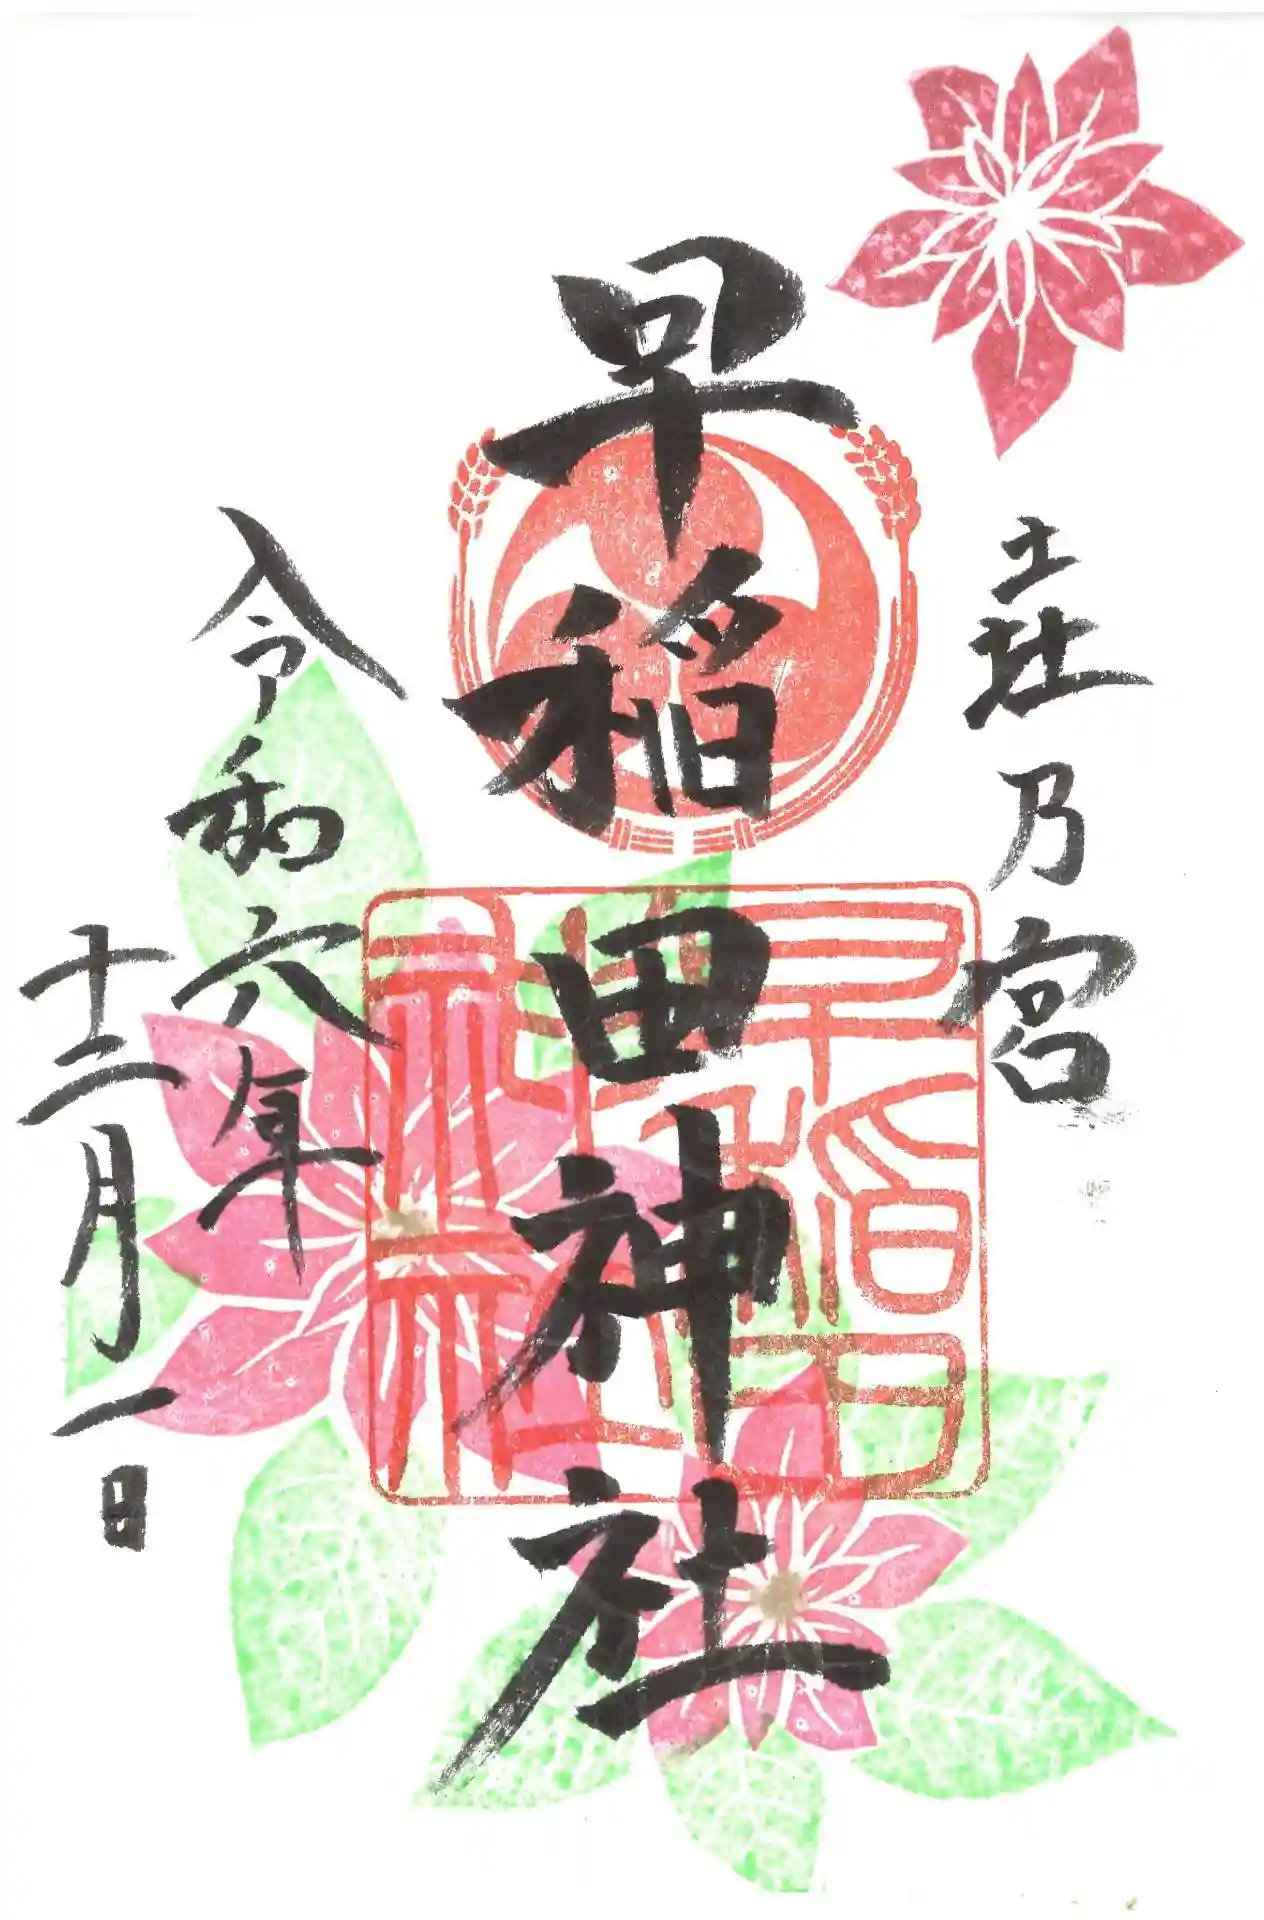 乃宮
早稲田神社
令和六年
十二月一日
早稲田
神社